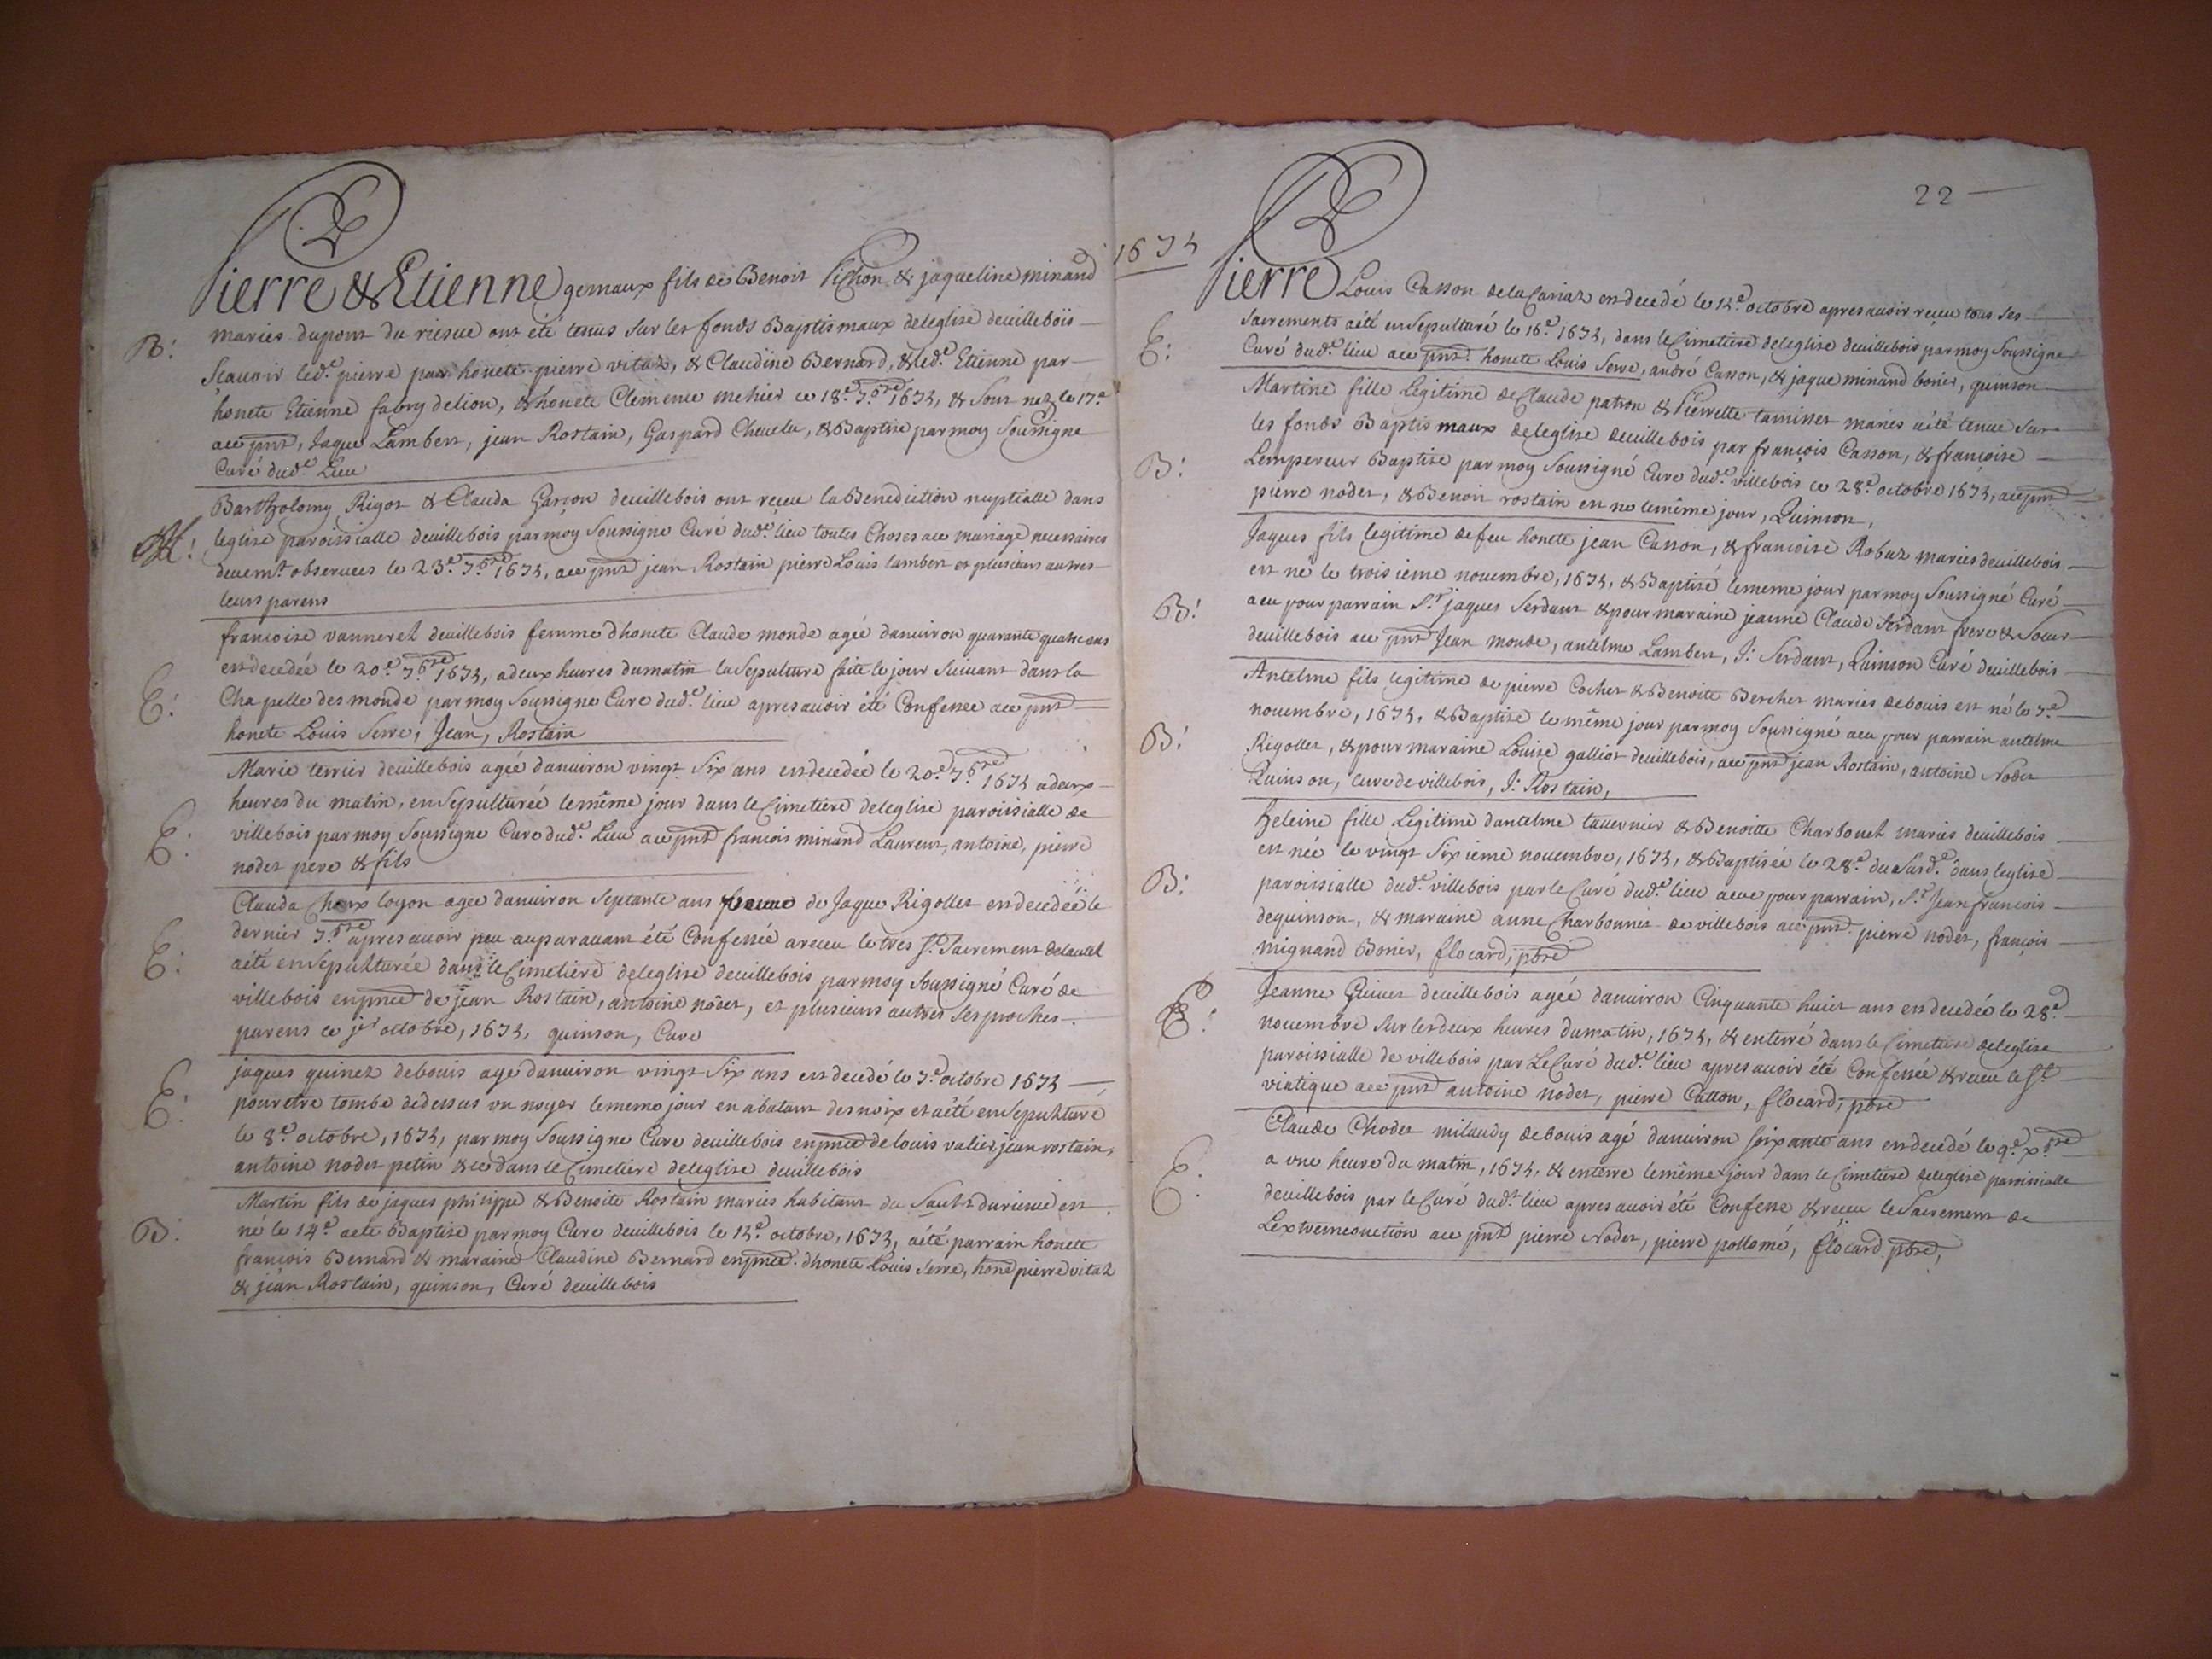 Pierre & Etienne gemaux fils de Benoit Pichon & jaqueline minand
B: mariés dupont du rieseu ont été tenus sur les fonds Baptismaux deleglise deuillebois
Sçauoir led.e pierre par honete pierre vitoz, & Claudine Bernard, & led.e Etienne par
honete Etienne fabry delion, & honete Clemence mehier ce 18.e 7.bre 1673, & sont nez le 17.e
ace pnt, Jaque Lambert, jean Rostain, Gaspard Cheuelu, & Baptisé par moy soussigne
Curé dud.e Lieu
Bartholomy Rigot & Clauda Garçon deuillebois ont reçeu la Benediction nuptialle dans
M: leglise paroissialle deuillebois par moy soussigne Curé dud.e lieu toutes Choses ace mariage necessaires
deuem.t obseruees le 23.e 7.bre 1673, ace pnt jean Rostain pierre Louis lambert et plusieurs autres
leurs parens
francoise vanneret deuillebois femme dhonete Claude monde agée danuiron quarante quatre ans
est decedée le 20.e 7.bre 1673, adeux heures dumatin la sepulture faite le jour suiuant dans la
E: Chapelle des monde par moy soussigne Cure dud.e lieu apres auoir été Confessee ace pnt
honete Louis Serre, Jean, Rostain
Marie terrier deuillebois agée danuiron vingt six ans est decedée le 20.e 7.bre 1673 adeux
heures du matin, ensepulturée lemême jour dans le Cimetiere deleglise paroissialle de
E: villebois par moy soussigne Cure dud.e Lieu ace pnt francois minand Laurent, antoine, pierre
nodet pere & fils
Clauda Choux loyon agee danuiron septante ans femme de Jaque Rigollet est decedée le
dernier 7.bre apres auoir peu auparauant été Confessée areceu le tres S.t Sacrement delautel
E: aété ensepulturée dans le Cimetiere deleglise deuillebois par moy soussigné Curé de
villebois enpnce de jean Rostain, antoine nodet, et plusieurs autres ses proches
parens ce jer octobre, 1673, quinson, Cure
jaques guinez debouis agé danuiron vingt six ans est decedé le 7.e octobre 1673
E: pour etre tombé dedessus vn noyer lememe jour en abatant des noix et aété ensepulturé
le 8.e octobre, 1673, par moy soussigne Cure deuillebois enpnce de louis valier, jean rostain,
antoine nodet petin & ce dans le Cimetiere deleglise deuillebois
Martin fils de jaques philippe & Benoite Rostain mariés habitant du Sault durieseu est
B: né le 14.e aete Baptisé par moy Cure deuillebois le 12.e octobre, 1673, aété parrain honette
françois Bernard & maraine Claudine Bernard enpnce dhonete Louis Serre, hone pierre vitaz
& jean Rostain, quinson, Curé deuillebois
1673
22
Pierre Louis Casson dela Cariaz est decedé le 12.e octobre apres auoir reçeu tous ses
E: sacrements aété ensepulturé le 16.e 1673, dans le Cimetiere deleglise deuillebois par moy soussigne
Curé dud.e lieu ace pnt honete Louis Serre, andré Casson, & jaque minand bonier, quinson
Martine fille Legitime de Claude patron & Pierrette tamisset mariés aété tenue sur
les fonds Baptismaux deleglise deuillebois par françois Casson, & françoise
B: Lempereur Baptisé par moy soussigné Cure dud.e villebois ce 28.e octobre 1673, ace pnt
pierre nodet, & Benoit rostain est ne lemême jour, Quinson,
Jaques fils legitime de feu honete jean Casson, & francoise Robaz mariés deuillebois
est né le troisieme nouembre, 1673, & Baptisé lememe jour par moy soussigné Curé
B: aeu pour parrain S.r jaques Serdant & pour maraine jeanne Claude Serdant frere & Soeur
deuillebois ace pnt Jean monde, antelme Lambert, J: Serdant, Quinson Curé deuillebois
Antelme fils legitime de pierre Cochet & Benoite Berchet mariés debouis est né le 7.e
nouembre, 1673, & Baptisé le même jour par moy soussigné aeu pour parrain antelme
B: Rigollet, & pour maraine Louise galliot deuillebois, ace pnt jean Rostain, antoine Nodet
Quinson, cure de villebois, J: Rostain,
heleine fille Legitime dantelme tauernier & Benoitte Charbonet mariés deuillebois
est née le vingt sixieme nouembre, 1673, & Baptisée le 28.e du susd.e dans leglise
B: paroissialle dud.e villebois par le Curé dud.e lieu aeue pour parrain, S.r Jean francois
dequinson, & maraine anne Charbonnet de villebois ace pnt pierre nodet, françois
mignand Bonier, flocard, pbre
Jeanne Guinet deuillebois agée danuiron Cinquante huict ans est decedée le 28.e
E: nouembre sur les deux heures dumatin, 1673, & enterré dans le Cimetiere deleglise
paroissialle de villebois par Le Curé dud.e lieu apres auoir été Confessée & receu le S.t
viatique ace pnt antoine nodet, pierre Cutton, flocard, pbre
Claude Chodet milaudy debouis agé danuiron soixante ans est decedé le 9.e x.bre
a vne heure du matin, 1673, & enterre lemême jour dans le Cimetiere deleglise paroissialle
E: deuillebois par le Curé dud.t lieu apres auoir été Confesse & receu le Sacrement de
Lextremeonction ace pnt pierre Nodet, pierre pollomé, flocard pbre,